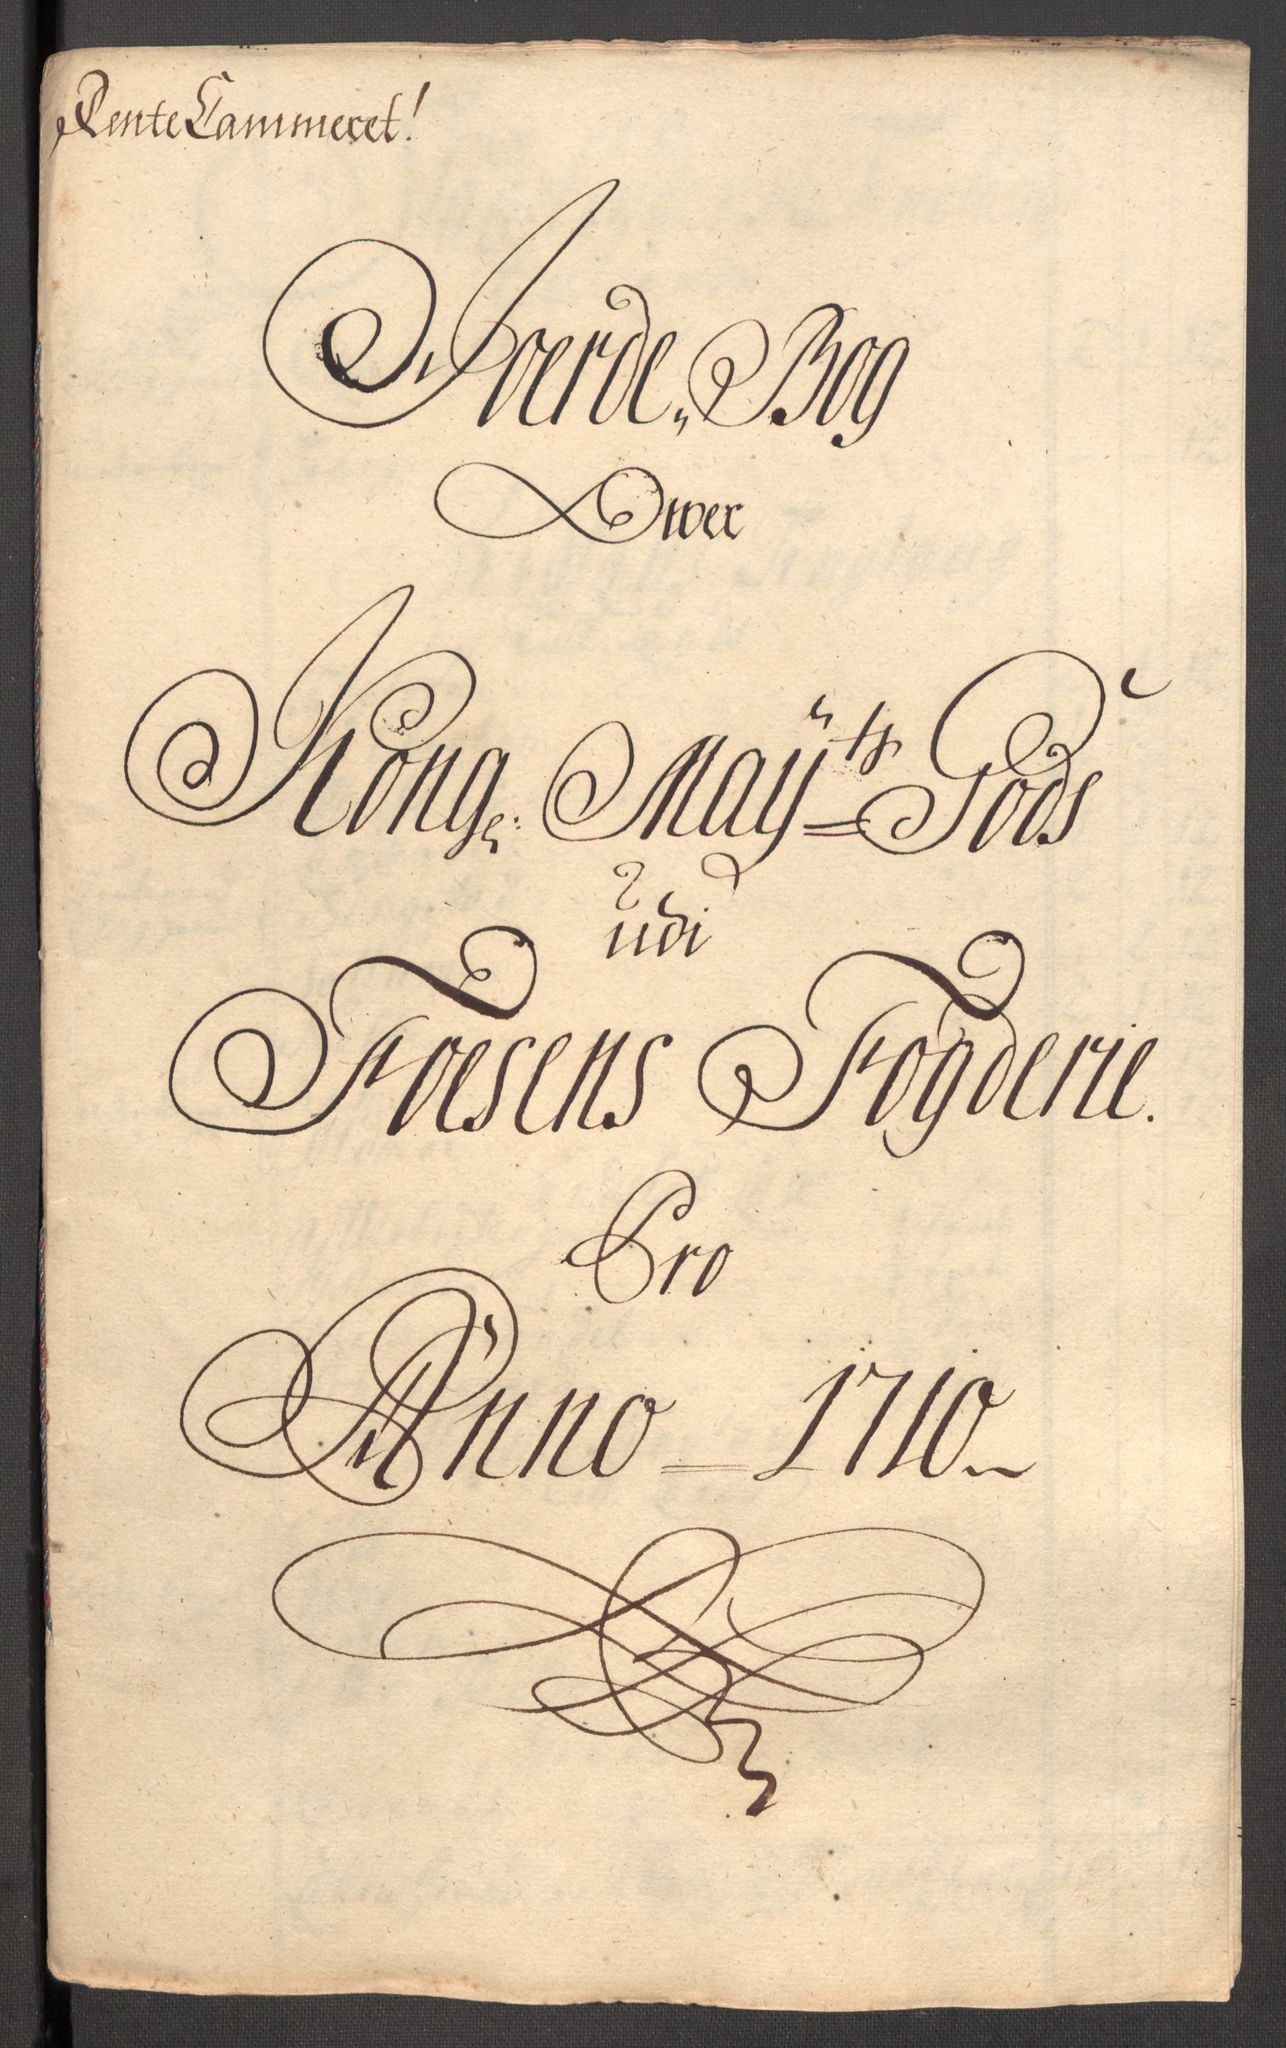 Rente Cammeret!
Joerde„ Bog
Over
Kong: Maÿts Gods
udi
Foesens Fogderie.
Pro
Anno 1710